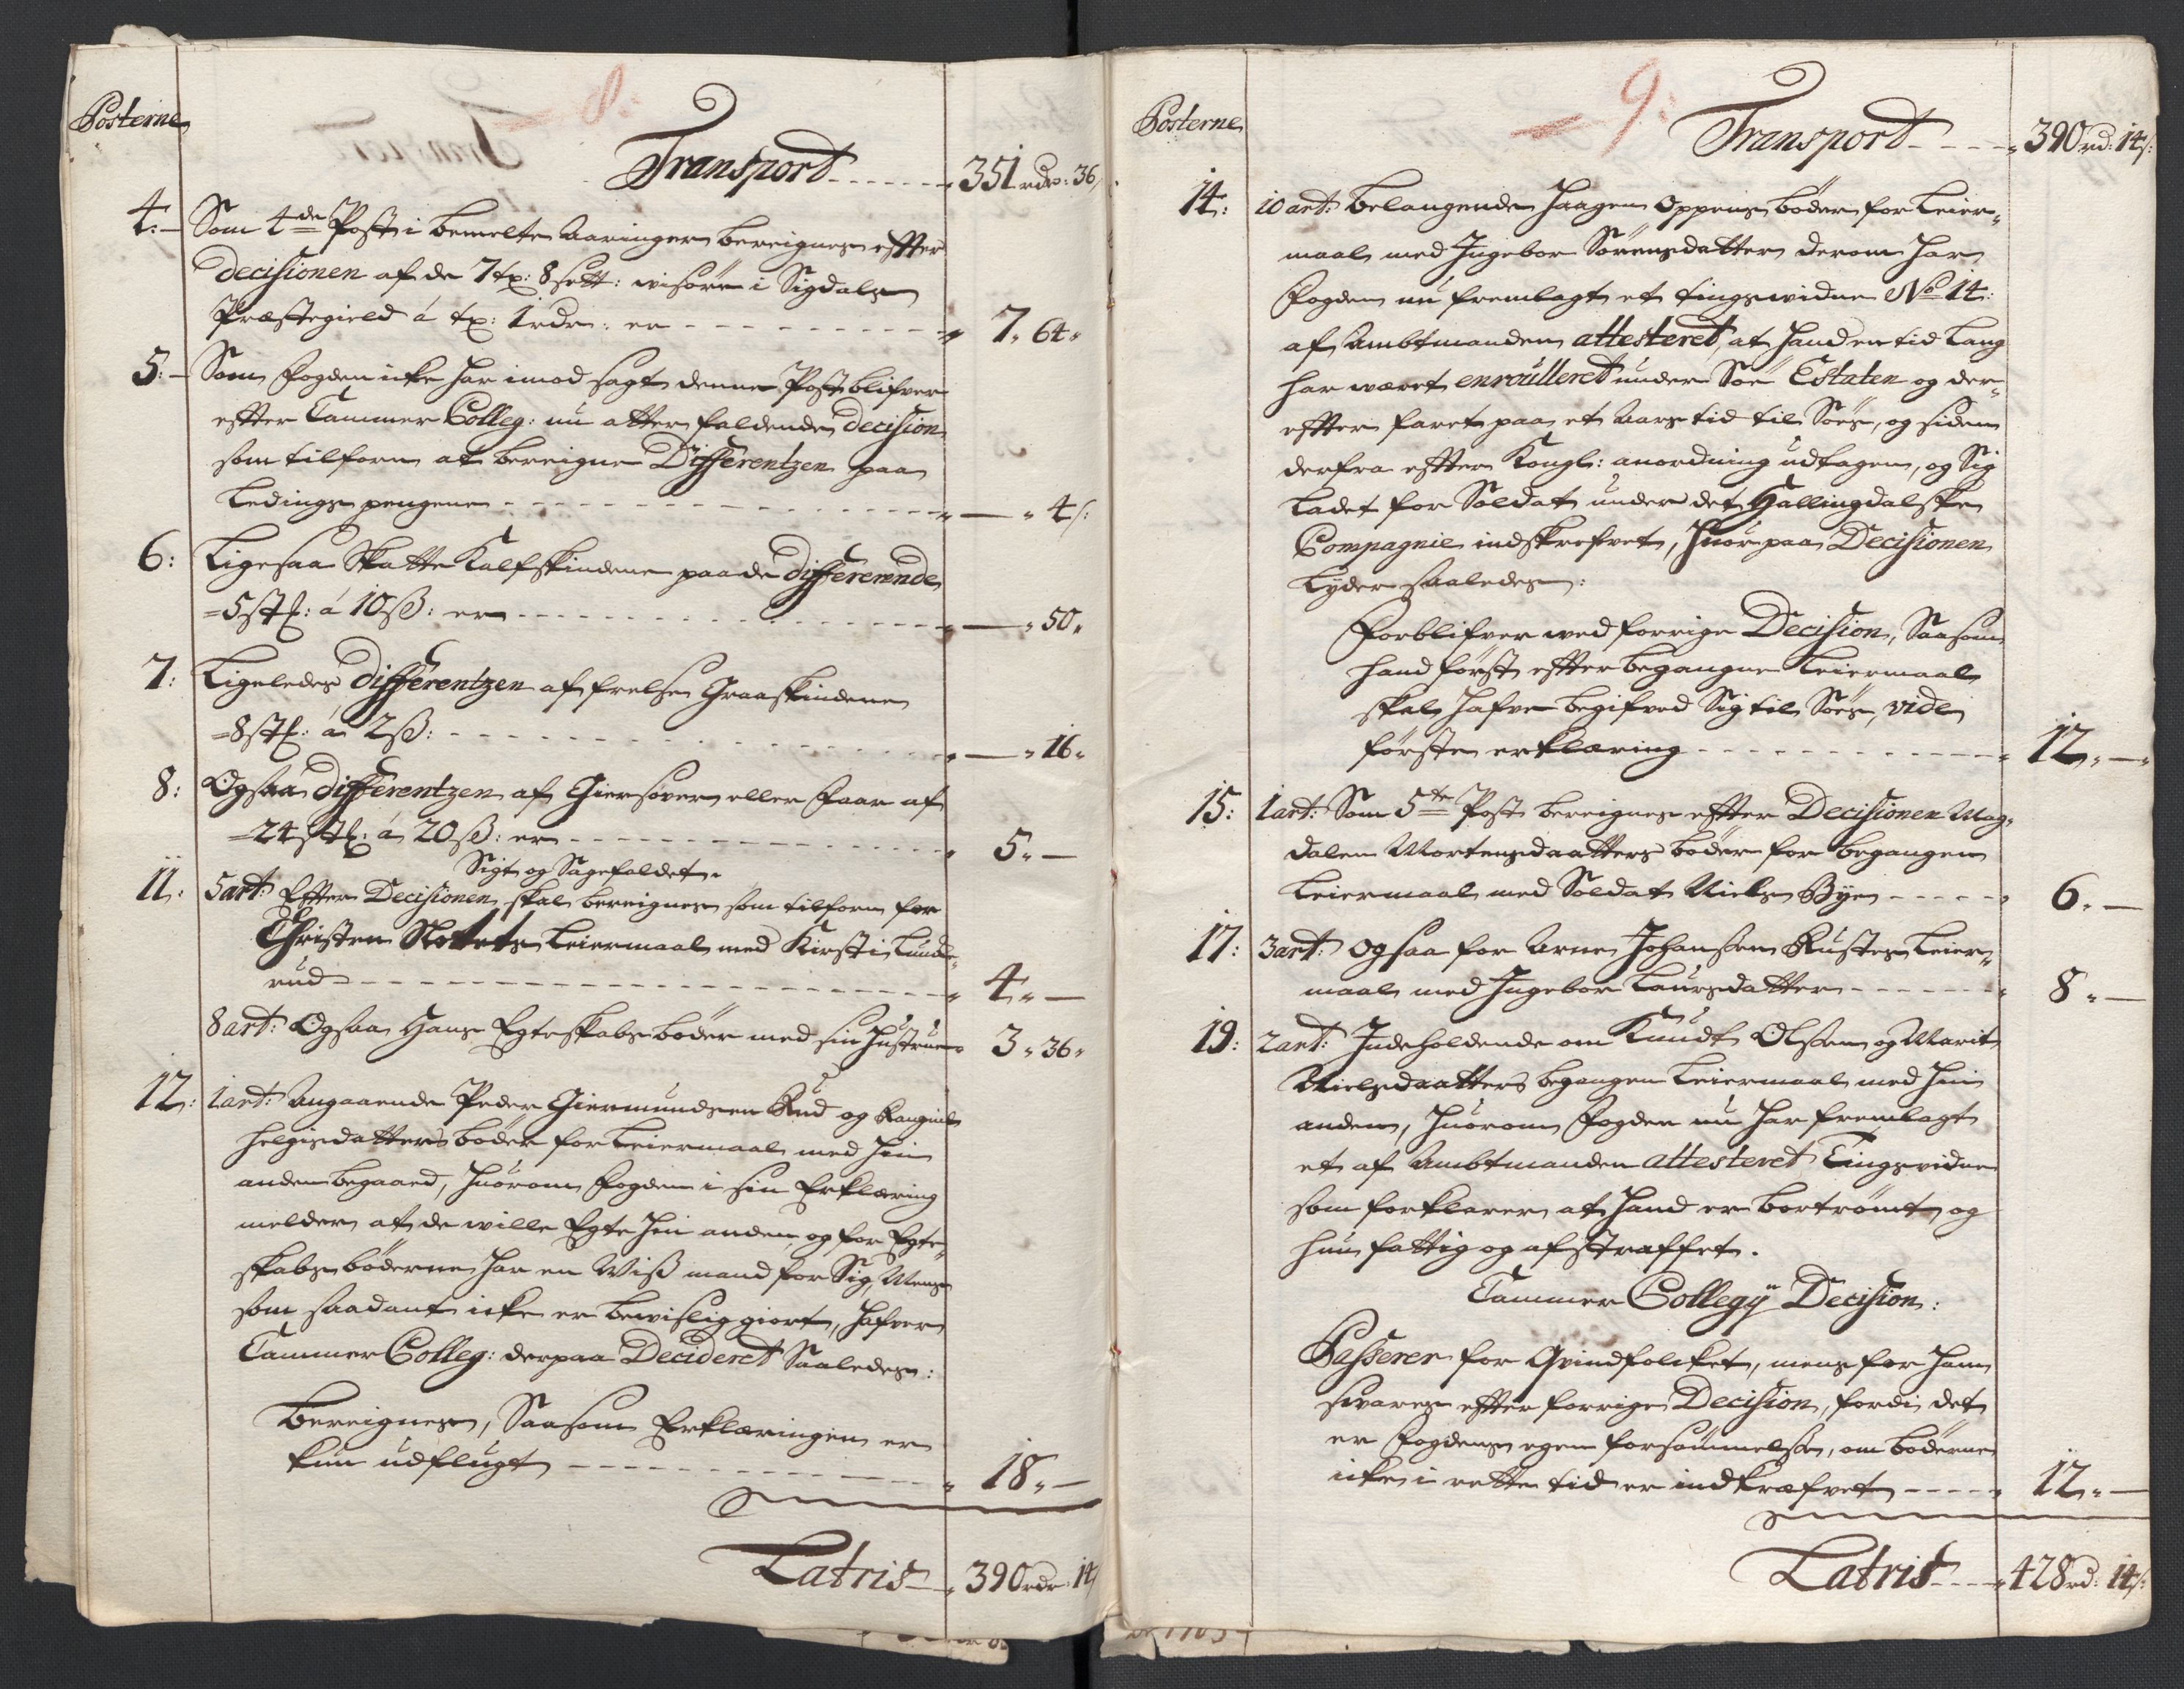 8:
Posterne
Transport - - - - - - 351 rdr: 36
4: Som 4de Post i bemelte Aaringer bereignes efter
Decisionen af de 7 tp: 8 sett: wisøre i Sigdals
Præstegield á tp: 1 rdr: er - - - - 7. 64.
5: Som Fogden icke har imod sagt denne Post blifver
efter Cammer Colleg: nu atter faldende decision
som tilforn at bereigne Differentzen paa
Ledings pengene - - - - - - - - 4 s:
6: Ligesaa Skatte Kalfskindene paa de differerende
5 stk: á 10 ß: er - - - - - - 50.
7: Ligeledes differentzen af frelse Graaskindene
8 stk: á 2 ß: - - - - - - 16.
8: Ogsaa differentzen af Giersøren eller Faar af
24 stk: á 20 ß: er - - - - - - 5. —
Sigt og Sagefaldet.
11: 5 art: Efter Decisionen skal bereignes som tilforn for
Christen Leiermaal med Kirsti Lunde-
rud - - - - - - - - - 4. —
8 art: Ogsaa Hans Egteskabs bøder med sin Hustrue 3. 36.
12: 1 art: Angaaende Peder Giermundsen Rud og Rangnil
Helgisdatters bøder for Leiermaal med hin
anden begaaed, huorom Fogden i sin Erklæring
melder, at de wille Egte hin anden, og for Egte-
skabs bøderne har en Wiß mand for Sig, Mens
som saadant icke er bewislig giort, hafver
Cammer Colleg: derpaa Decideret Saaledes:
Bereignes, Saasom Erklæringen er
kun udflugt - - - - - - 18. —
Latris - - 390 rdr: 14
9:
Posterne
Transport - - - - 390 rd: 14 s:
14: 10 art: Belangende Haagen Oppens bøder for Leier-
maal med Ingebor Sørensdatter derom har
Fogden nu fremlagt et tingswidne No 14:
af Ambtmanden attesteret, at hand en tid lang
har wæret enroulleret under Søe Estaten og der-
efter faret paa et Aars tid til Søes, og siden
derfra efter Kongl: anordning udtagen, og Sig
ladet for Soldat under det Hallingdalske
Compagnie indskrefvet, huor paa Decisionen
lyder saaledes:
Forblifver wed forrige Decision, Saasom
hand først efter begangne Leiermaal
skal hafve begifved Sig til Søes, vide
første erklæring - - - - - - 12. —
15: 1 art: Som 5te Post bereignes efter Decisionen Mag-
dalen Mortensdaatters bøder for begangen
Leiermaal med Soldat Niels Bye - - - - 6. —
17: 3 art: ogsaa for Arne Johansen Rustes Leier-
maal med Ingebor Laursdatter - - - - 8. —
19: 2 art: Indeholdende om Knudt Olsen og Marit
Nielsdaatters begangen Leiermaal med hin
anden, huorom Fogden nu har fremlagt
et af Ambtmanden attesteret Tingsvidne
som forklarer at hand er bortrømt og
hun fattig og afstraffet.
Cammer Collegy Decision:
Passerer for Qvindfolcket, mens for ham
swares efter forrige Decision, fordi det
er Fogdens egen forsømmelse, om bøderne
icke i rette tid er indkræfvet - - - - 12. —
Latris - - - - 428 rd: 14 s: